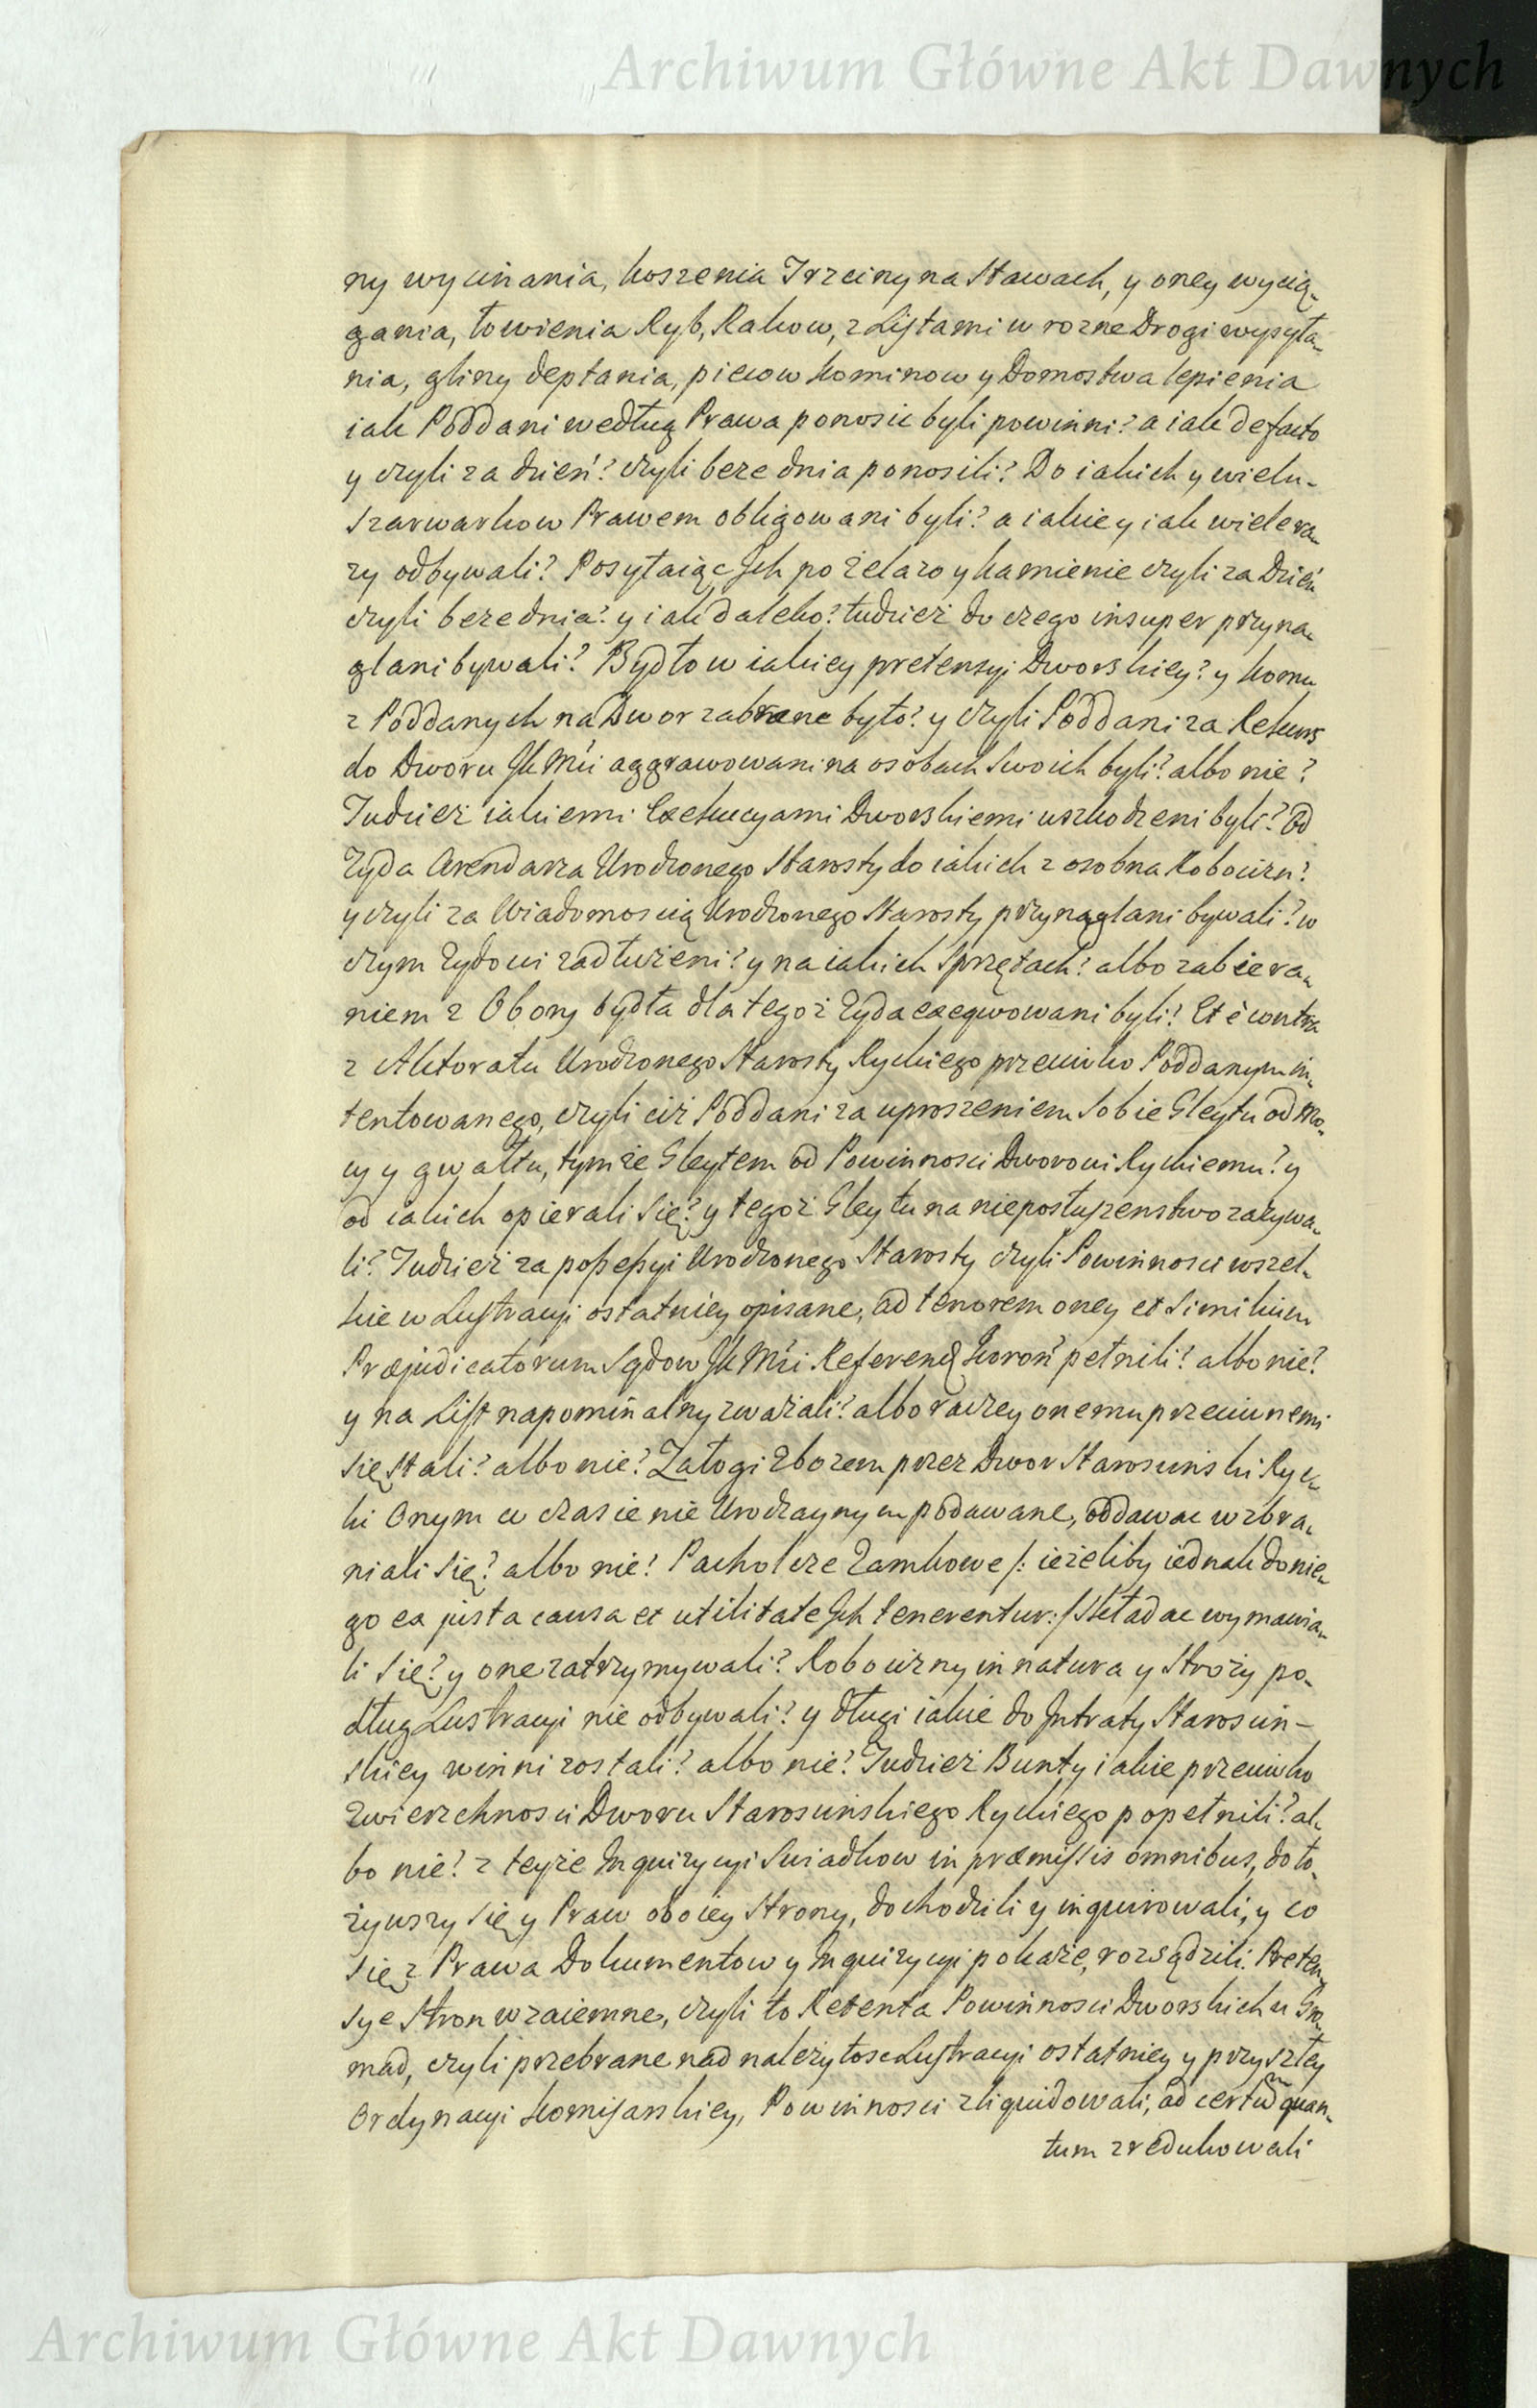 Archiwum Główne Akt Dawnych
ny wycinania, koszenia Trzciny na Stawach, y oney wycią-
gania, łowienia Ryb, Rakow, z Listami w rozne Drogi wysyła-
nia, gliny deptania, piecow kominow y Domostwa lepienia
iak Poddani według Prawa ponosic byli powinni? a iak de facto
y czyli za dzień? czyli beze dnia ponosili? Do iakich y wielu-
Szarwarkow Prawem obligowani byli? a iakie y iak wiele ra-
zy odbywali? Posyłaiąc Ich po żelazo y kamienie czyli za Dzień
czyli beze dnia? y iak daleko? tudzież do czego insuper przyna-
glani bywali? Bydło w iakiey pretensyi Dworskiey? y komu
z Poddanych na Dwor zabrane było? y czyli Poddani za Rekurs
do Dworu JKMci aggrawowani na osobach Swoich byli? albo nie?
Tudzież iakiemi Exekucyami Dworskiemi uszkodzeni byli? Od
Żyda Arendarza Urodzonego Starosty do iakich z osobna Robocizn?
y czyli za Wiadomoscią Urodzonego Starosty przynaglani bywali? w
czym Żydowi zadłużeni? y na iakich Sprzętach? albo zabiera-
niem z Obory bydła dla tegoż Żyda exeqwowani byli? Et è contra
z Aktoratu Urodzonego Starosty Ryckiego przeciwko Poddanym in-
tentowanego, czyli ciż Poddani za uproszeniem Sobie Gleytu od Mo-
cy y gwałtu, tymże Gleytem od Powinnosci Dworowi Ryckiemu? y
od iakich opierali Się? y tegoż Gleytu na nieposłuszenstwo zażywa-
li? Tudzież za possessyi Urodzonego Starosty czyli Powinnosci wszel-
kie w Lustracyi ostatniey opisane, ad tenorem oney et Similium
Præjudicatorum Sądow JKMci Referend Koroń pełnili? albo nie?
y na List napominalny zważali? albo raczey onemu przeciwnemi
Się Stali? albo nie? Załogi Zbożem przez Dwor Starosciński Ryc-
ki Onym w czasie nie Urodzaynym podawane, oddawac wzbra-
niali Się? albo nie? Pacholcze Zamkowe /: ieżeliby iednak do nie-
go ex justa causa et utilitate Ich tenerentur :/ Składac wymawia-
li Się? y one zatrzymywali? Robocizny in natura y Stroży po-
dług Lustracyi nie odbywali? y długi iakie do Intraty Staroscin-
skiey winni zostali? albo nie? Tudzież Bunty iakie przeciwko
Zwierzchnosci Dworu Staroscinskiego Ryckiego popełnili? al-
bo nie? z teyże Inquizycyi Swiadkow in præmissis omnibus, doło-
żywszy Się y Praw oboiey Strony, dochodzili y inquirowali, y co
Się z Prawa Dokumentow y Inquizycyi pokaże, rozsądzili. Preten-
sye Stron wzaiemne, czyli to Retenta Powinnosci Dworskich u Gro-
mad, czyli przebrane nad należytosc Lustracyi ostatniey y przyszłey
Ordynacyi Komisarskiey, Powinnosci zliquidowali, ad certum quan-
tum zredukowali
Archiwum Główne Akt Dawnych